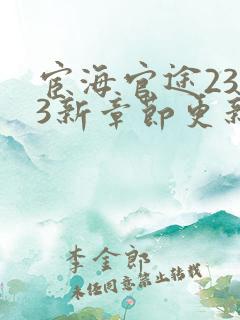 宦海官途23
3新章節更新
李金郎
未经同意禁止转载